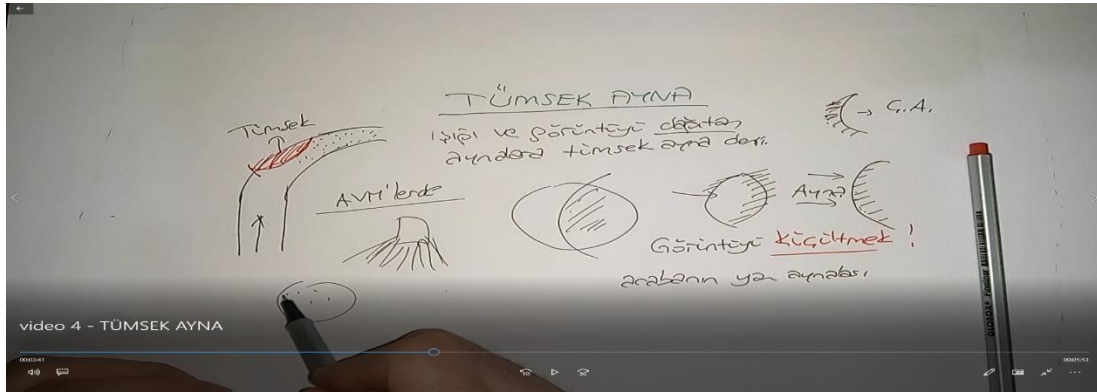 TÜMSEK AYNA
Işığı ve görüntüyü dağıtan
aynalara tümsek ayna denir.
Tümsek
→ Ç.A.
AVM'lerde
Ayna
Görüntüyü küçültmek!
arabanın yan aynası
video 4 - TÜMSEK AYNA
00:03:41
00:05:53
10
30